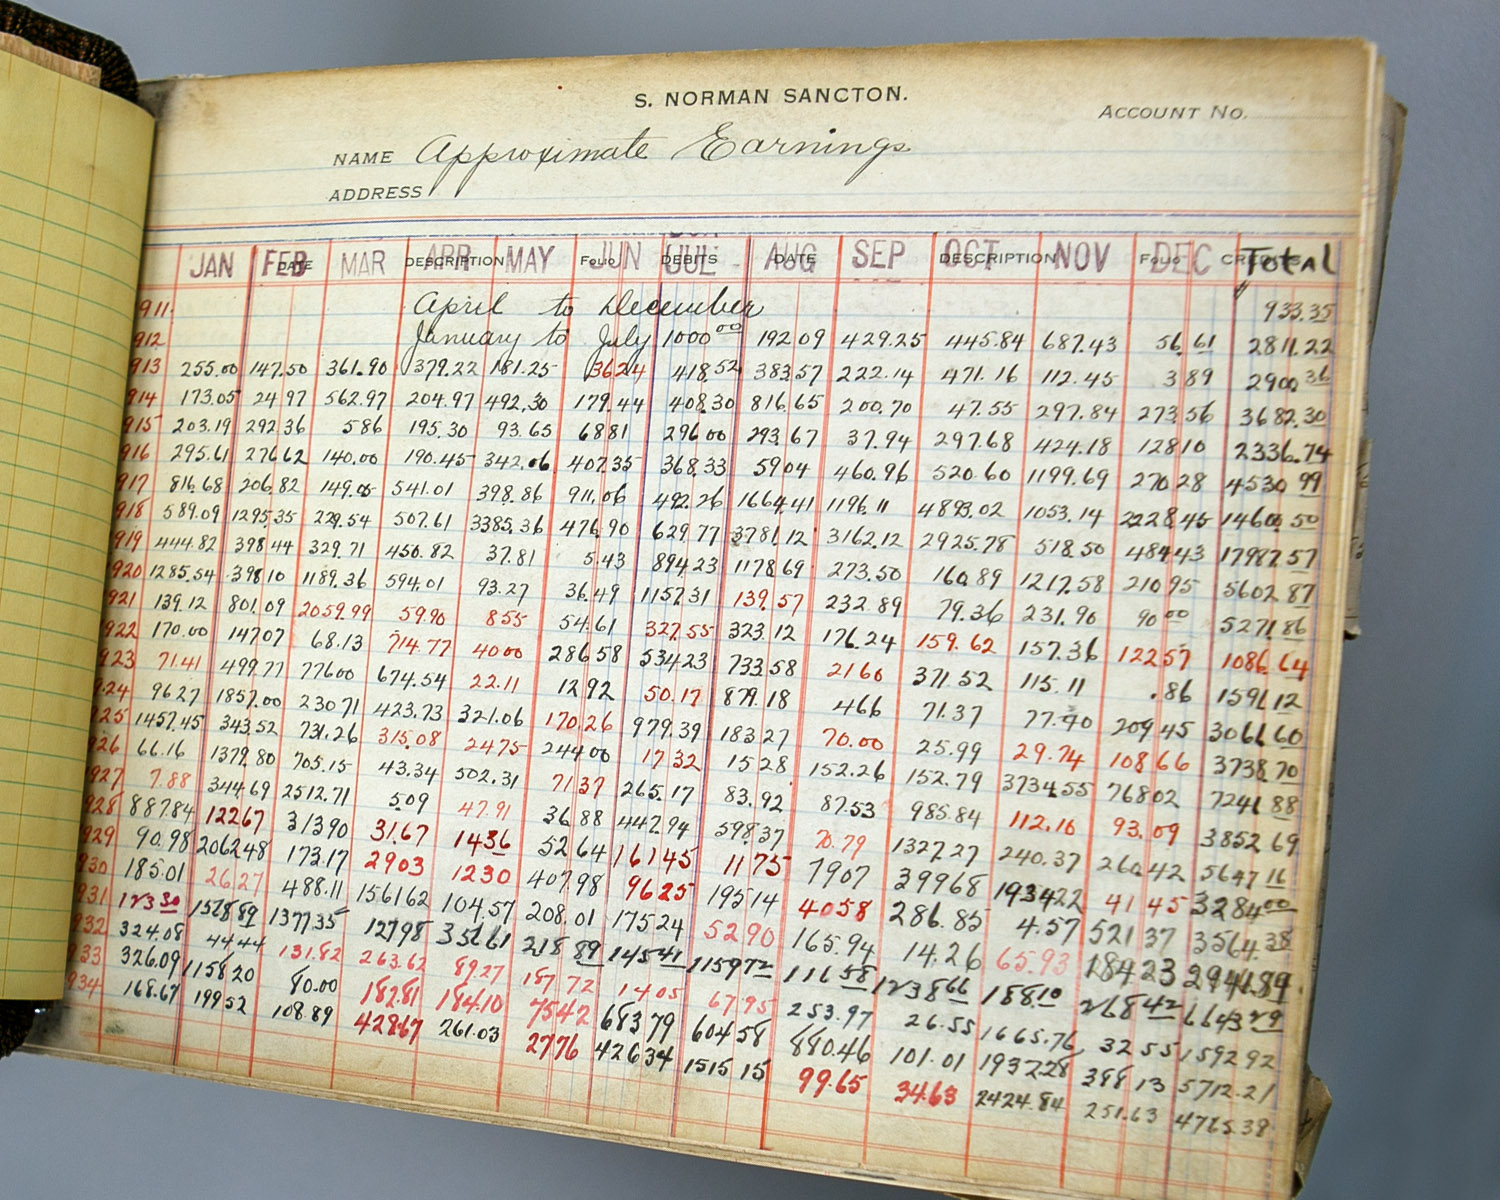 S. NORMAN SANCTON.
ACCOUNT NO.
NAME Approximate Earnings
ADDRESS
DATE DESCRIPTION FOLIO DEBITS DATE DESCRIPTION FOLIO CREDITS
JAN FEB MAR APR MAY JUN JUL AUG SEP OCT NOV DEC Total
911. April to December 933.35
912 January to July 1000.00 192 09 429.25 445.84 687.43 56.61 2811.22
913 255.00 147.50 361.90 379.22 181.25 3624 418.52 383.57 222.14 471.16 112.45 3 89 2900.36
914 173.05 24 97 562.97 204.97 492.30 179.44 408.30 816.65 200.70 47.55 297.84 273.56 3682.30
915 203.19 292 36 586 195.30 93.65 6881 296 00 293.67 37.94 297.68 424.18 128 10 2336.74
916 295.61 276 62 140.00 190.45 342.06 407.35 368.33 5904 460.96 520.60 1199.69 270 28 4530 99
917 816.68 206.82 149.05 541.01 398.86 911.06 492.26 1664.41 1196.11 4893.02 1053.14 2228.45 14600.50
918 589.09 1295.35 229.54 507.61 3385.36 476.90 629.77 3781.12 3162.12 2925.78 518.50 484 43 17987.57
919 444.82 398 44 329.71 450.82 37.81 5.43 894 23 1178 69 273.50 160.89 1217.58 210 95 5602 87
920 1285.54 398 10 1189.36 594.01 93.27 36.49 1157.31 139.57 232.89 79.36 231.90 90 00 5271.86
921 139.12 801.09 2059.99 59.90 855 54.61 327.55 323.12 176.24 159.62 157.36 122 57 1086.64
922 170.00 147 07 68.13 714.77 40 00 286 58 534 23 733.58 21 60 371.52 115.11 .86 1591.12
923 71.41 499.77 776 00 674.54 22.11 12 92 50.17 879.18 466 71.37 77.40 209 45 3066 60
924 96 27 1857.00 230 71 423.73 321.06 170.26 979.39 183 27 70.00 25.99 29.74 108 66 3738.70
925 1457.45 343.52 731.26 315.08 24 75 244 00 17 32 15 28 152.26 152.79 3734.55 768 02 7241 88
926 66.16 1379.80 705.15 43.34 502.31 71 37 265.17 83.92 87.53 985.84 112.10 93.09 3852 69
927 7.88 344 69 2512.71 509 47.91 36 88 447.94 598.37 70.79 1327 27 240.37 260.42 5647 16
928 887.84 12267 31390 31.67 1436 52 64 16145 11 75 7907 39968 1934 22 41 45 3284 00
929 90.98 2062 48 173.17 2903 1230 407.98 9625 195 14 4058 286.85 4.57 521 37 3564.38
930 185.01 26.27 488.11 1561 62 104.57 208.01 175 24 52 90 165.94 14.26 65.93 184 23 2944.84
931 123 30 1528 89 1377.35 127 98 351 61 218 89 145 41 1159 72 116 58 1238 66 188.10 268 42 6643 29
932 324.08 44.44 131.82 263.62 89.27 187 72 14 05 67.95 253.97 26.55 1665.76 32 55 1592 92
933 326.09 1158 20 80.00 182.81 184.10 7542 683 79 604 58 880.46 101.01 1937 28 388 13 5712.21
934 168.67 199 52 108.89 428.67 261.03 2776 426 34 1515 15 99.65 34.63 2424.84 251.63 4765.38